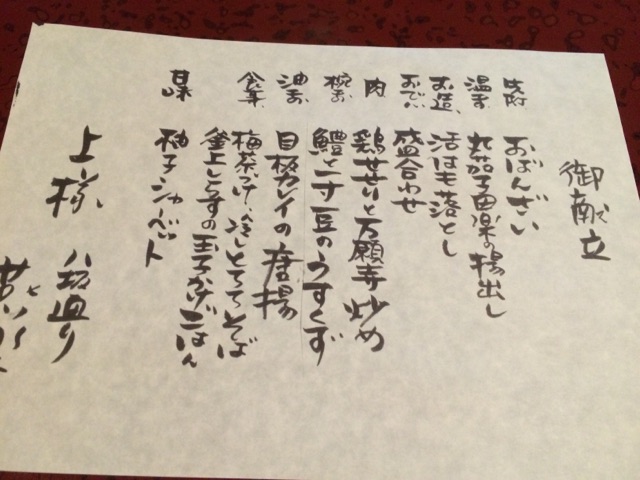 御献立
先附 おばんざい
温物 丸茄子田楽の揚出し
お造 活はも落とし
おでん 盛合わせ
肉 鶏せせりと万願寺炒め
椀物 鱧と一寸豆のうすくず
油物 目板カレイの唐揚
食事 梅茶づけ、冷しとろろそば
釜上しらすの玉子かけごはん
甘味 柚子シャーベット
上様 八坂通り